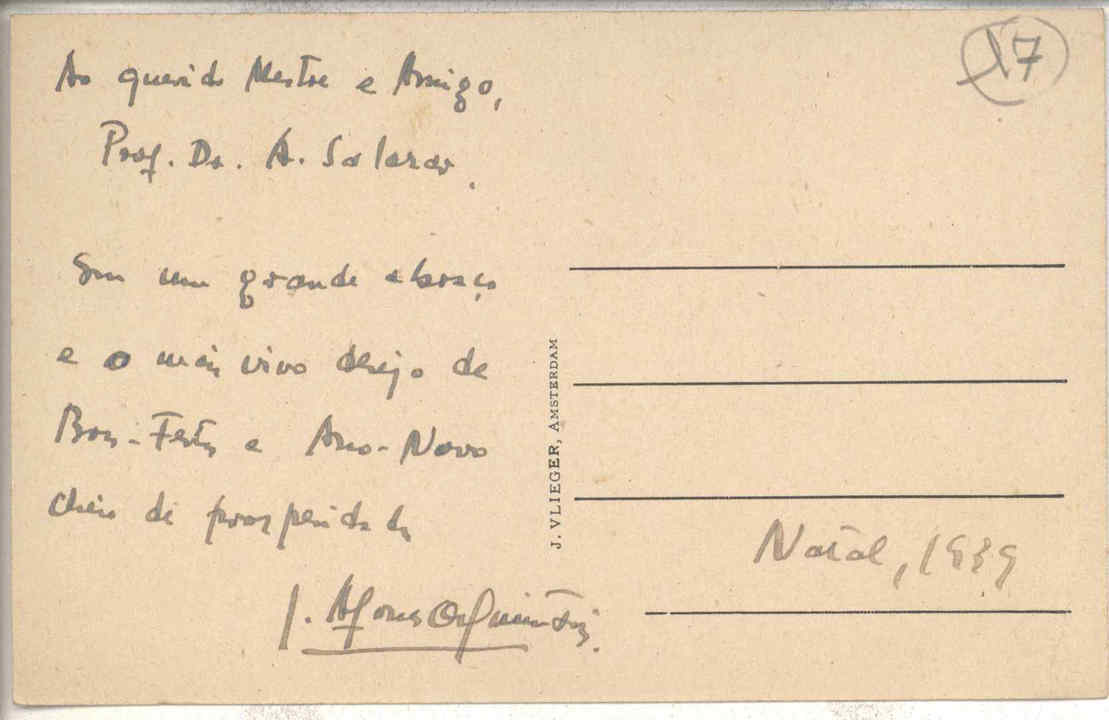 17
Ao querido Mestre e Amigo,
Prof. Dr. A. Salazar.
Em um grande abraço
e o mais vivo desejo de
Boas-Festas e Ano-Novo
cheio de prosperidade
J. Afonso
J. VLIEGER, AMSTERDAM
Natal, 1939